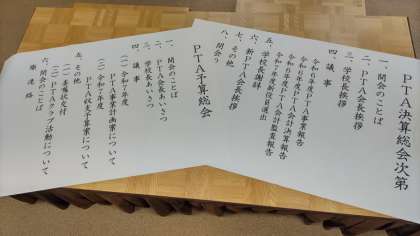 PTA決算総会次第
一、開会のことば
二、PTA会長挨拶
三、学校長挨拶
四、議事
令和6年度PTA事業報告
令和6年度PTA会計決算報告
令和6年度PTA会計監査報告
令和7年度新役員選出
五、学校長謝辞
六、新PTA会長挨拶
七、その他
八、閉会の
PTA予算総会
一、開会のことば
二、PTA会長あいさつ
三、学校長あいさつ
四、議事
(一) 令和7年度
PTA事業計画案について
(二) 令和7年度
PTA収支予算案について
五、その他
(一) 委嘱状交付
(二) PTAクラブ活動について
六、閉会のことば